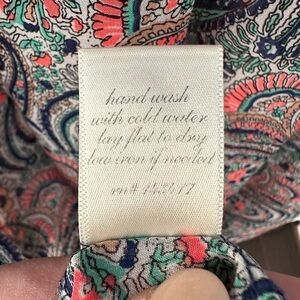 hand wash
with cold water
lay flat to dry
low iron if needed
rn# 143417